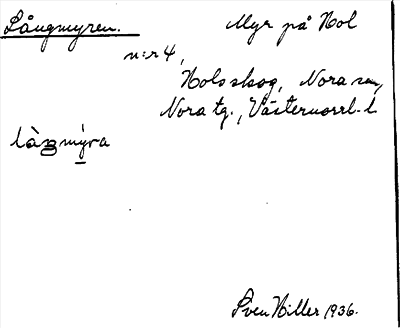 Långmyren. Myr på Hol
n:r 4,
Hols skog, Nora sn,
Nora tg., Västernorrl. l.
làŋmỳra
Sven Hiller 1936.